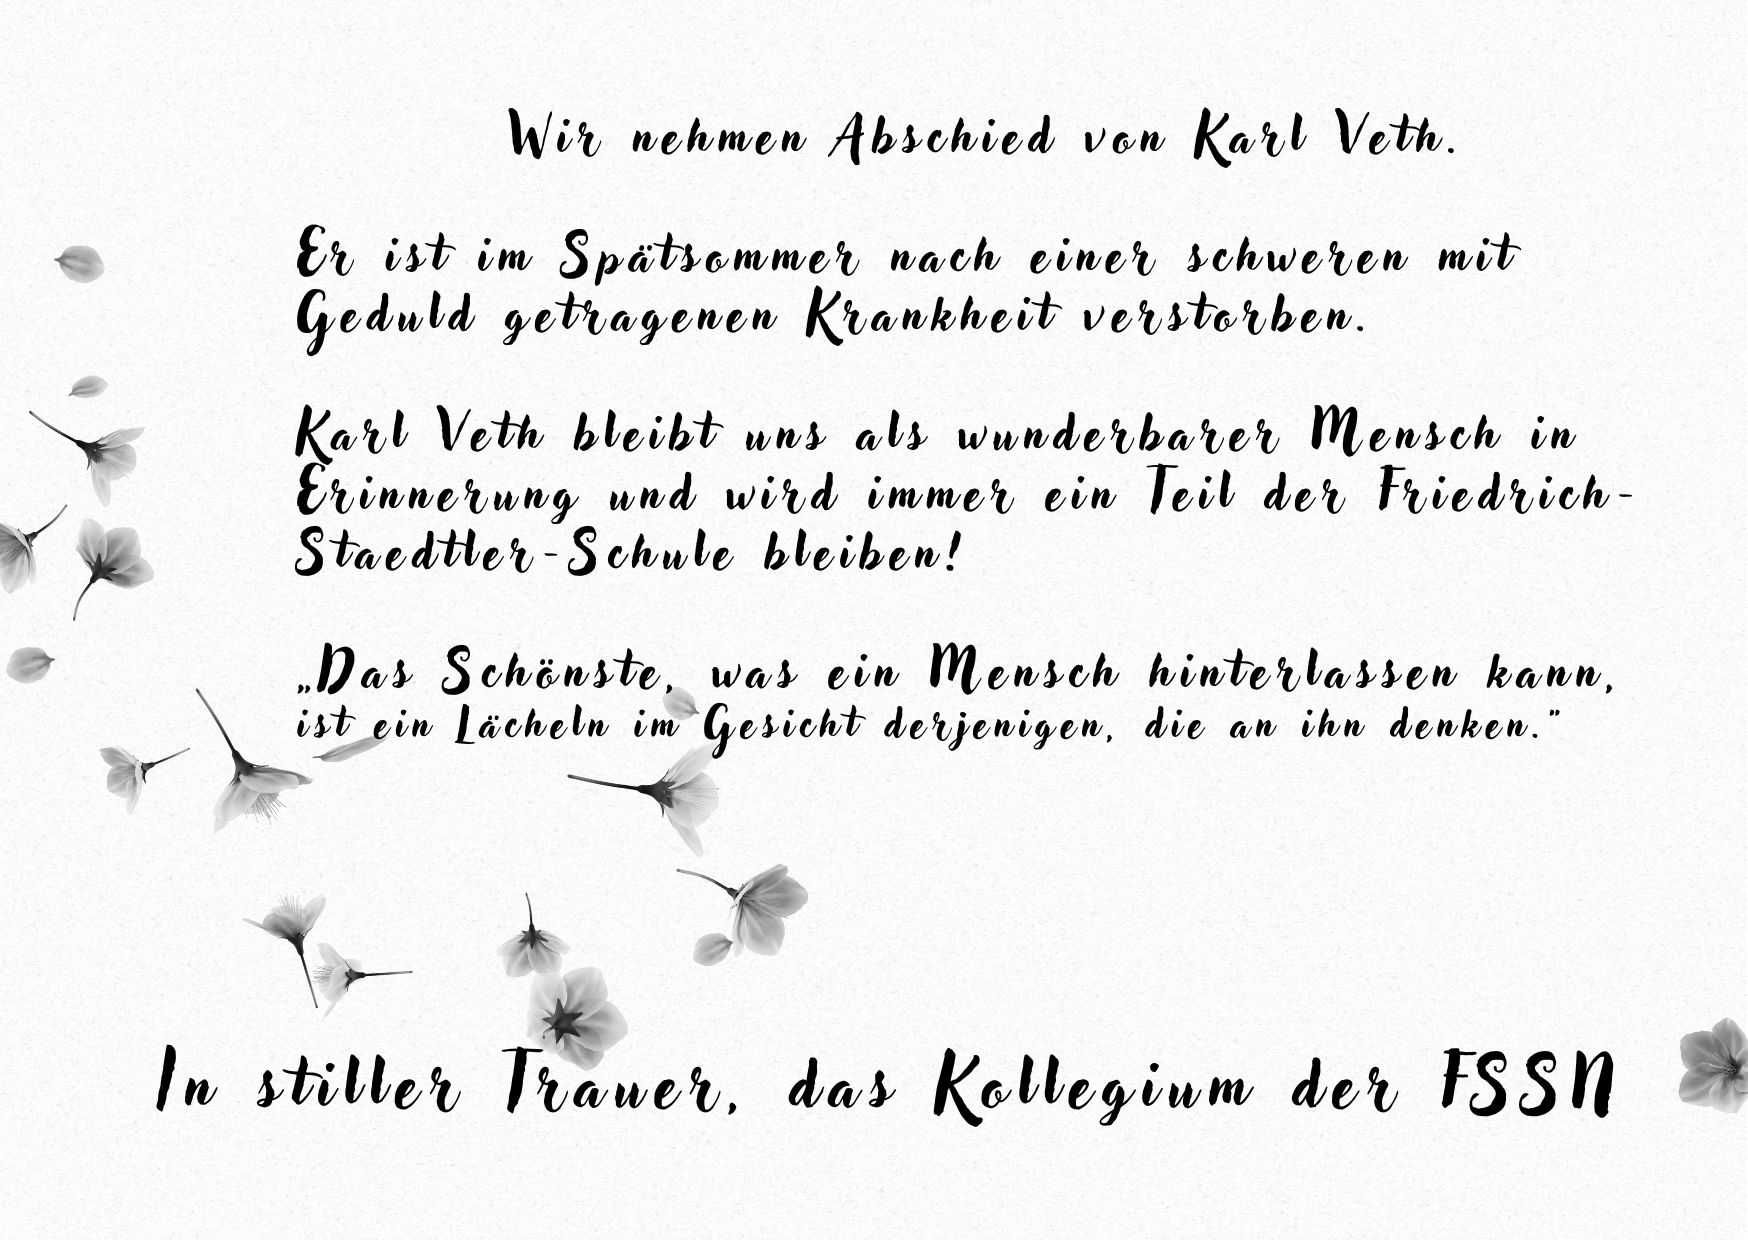 Wir nehmen Abschied von Karl Veth.
Er ist im Spätsommer nach einer schweren mit
Geduld getragenen Krankheit verstorben.
Karl Veth bleibt uns als wunderbarer Mensch in
Erinnerung und wird immer ein Teil der Friedrich-
Staedtler-Schule bleiben!
„Das Schönste, was ein Mensch hinterlassen kann,
ist ein Lächeln im Gesicht derjenigen, die an ihn denken.”
In stiller Trauer, das Kollegium der FSSN